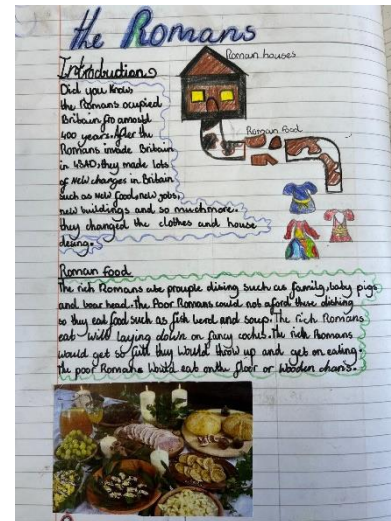 the Romans
Roman houses
Introduction
Did you know
the Romans ocupied
Britain fro amost
400 years. After the
Romans invade Britain
in 43AD, they made lots
of new changes in Britain
such as new food, new jobs,
new buildings and so much more.
they changed the clothes and house
desing.
Roman food
Roman food
The rich Romans ate prouple dising such as family, baby pigs
and boar head. The Poor Romans could not aford these dishing
so they eat food such as fish berd and soup. The rich Romans
eat will laying down on fancy coches. The rich Romans
would get so full they would throw up and get on eating.
The poor Romans would eat on the floor or wooden chairs.